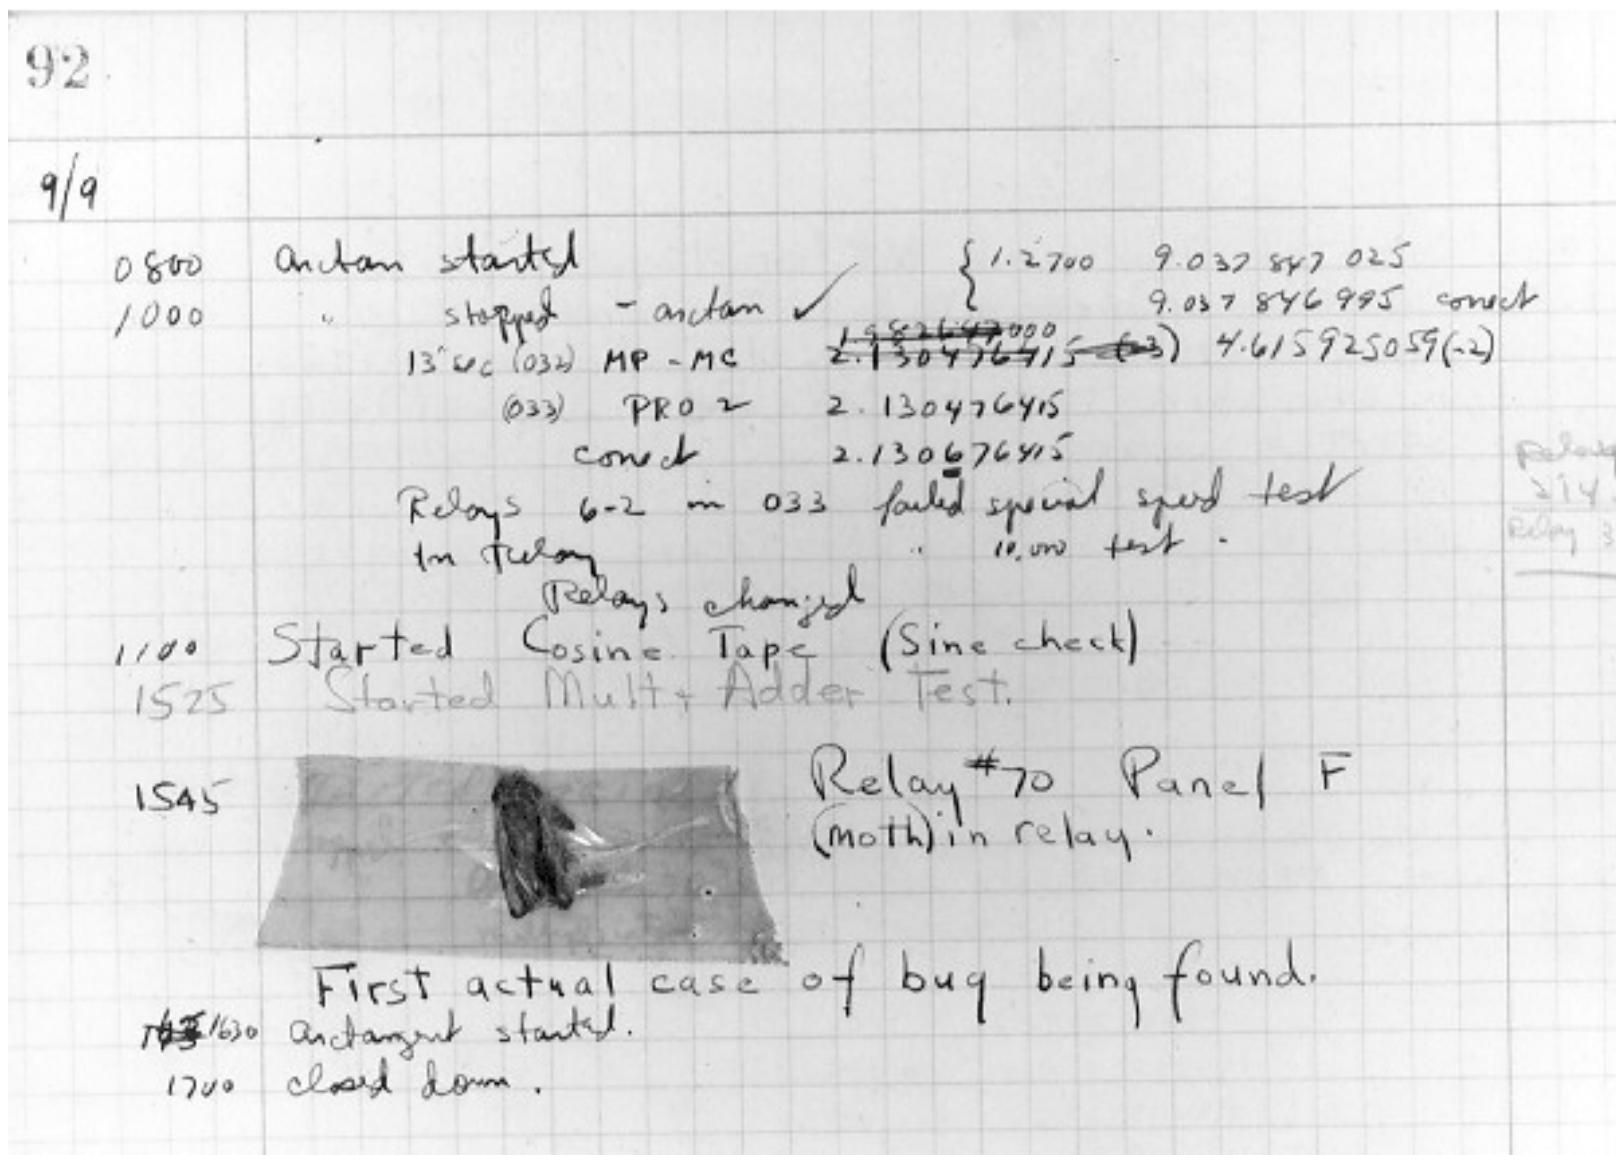 92
9/9
0800 arctan started { 1.2700 9.037 847 025
1000 " stopped - arctan ✓ 9.037 846 995 correct
1.982647000
13" sec (032) MP - MC 2.130476415 (-3) 4.615925059(-2)
(033) PRO 2 2.130476415
correct 2.130676415
Relays 6-2 in 033 failed special speed test
In Relay " 10,000 test .
Relays changed
1100 Started Cosine Tape (Sine check)
1525 Started Mult + Adder Test.
1545 Relay #70 Panel F
(moth) in relay.
First actual case of bug being found.
1630 arctangent started.
1700 closed down .
Relay
Relay 3